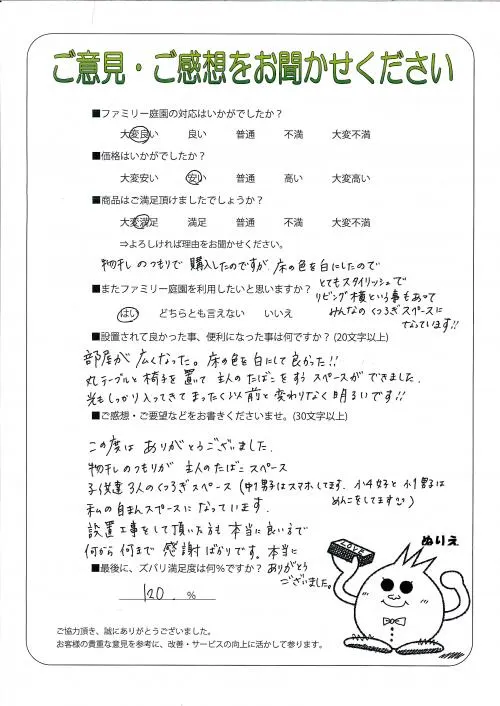 ご意見・ご感想をお聞かせください
■ファミリー庭園の対応はいかがでしたか？
大変良い 良い 普通 不満 大変不満
■価格はいかがでしたか？
大変安い 安い 普通 高い 大変高い
■商品はご満足頂けましたでしょうか？
大変満足 満足 普通 不満 大変不満
⇒よろしければ理由をお聞かせください。
物干しのつもりで購入したのですが、床の色を白にしたので
とてもスタイリッシュで
リビング横という事もあって
みんなのくつろぎスペースに
なっています!!
■またファミリー庭園を利用したいと思いますか？
はい どちらとも言えない いいえ
■設置されて良かった事、便利になった事は何ですか？(20文字以上)
部屋が広くなった。床の色を白にして良かった!!
丸テーブルと椅子を置いて主人のたばこをすうスペースができました。
光もしっかり入ってきてまったく以前と変わりなく明るいです!!
■ご感想・ご要望などをお書きくださいませ。(30文字以上)
この度はありがとうございました。
物干しのつもりが主人のたばこスペース
子供達3人のくつろぎスペース(中1男子はスマホしてます。小4女子と小1男子は
めんこをしてます)
私の自まんスペースになっています。
設置工事をして頂いた方も本当に良い方で
何から何まで感謝ばかりです。本当に
ありがとう
ございました。
■最後に、ズバリ満足度は何％ですか？
120. %
ぬりえ
LOVE
ご協力頂き、誠にありがとうございました。
お客様の貴重な意見を参考に、改善・サービスの向上に活かして参ります。